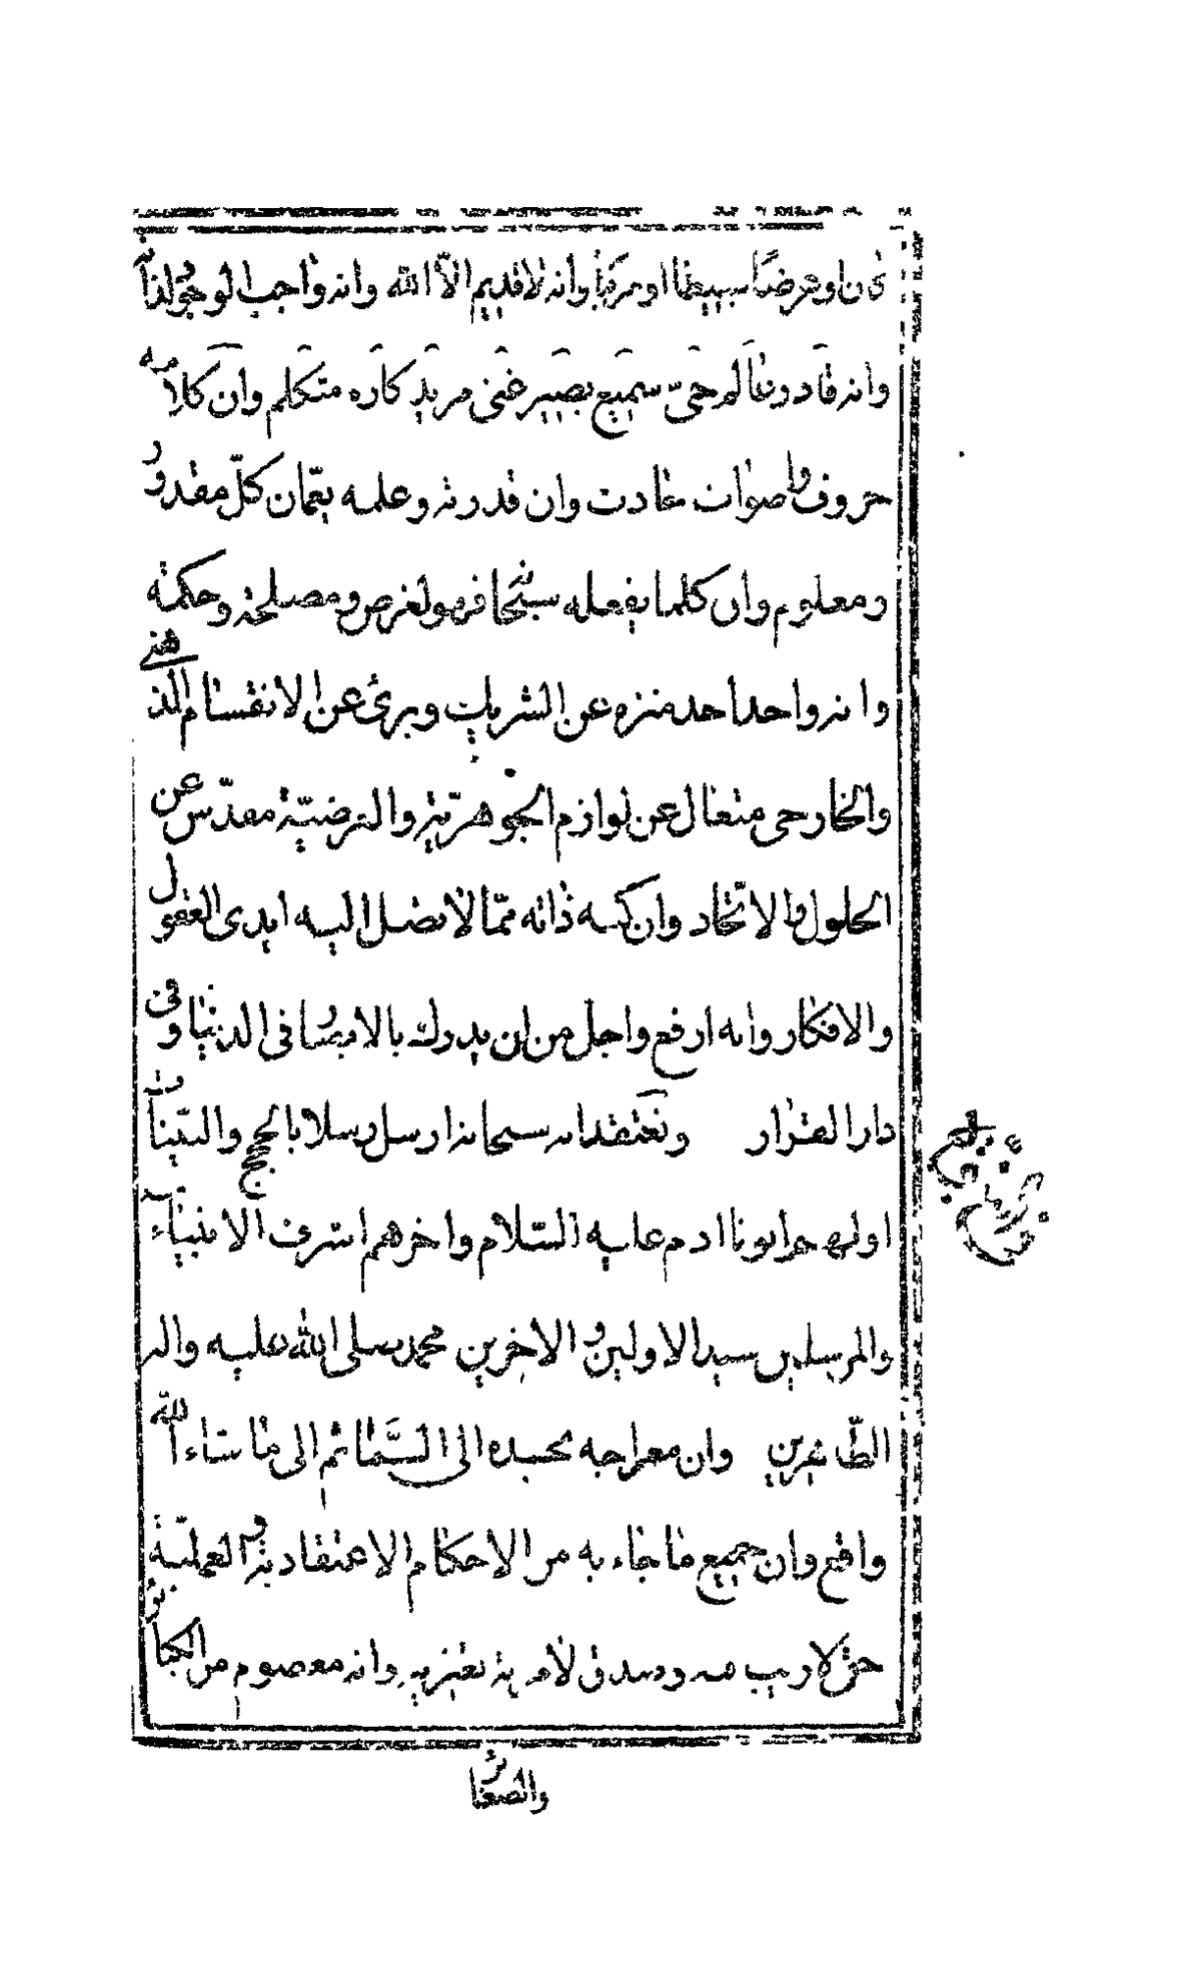 كان او عرضًا بسيطا او مركبا وانه لا قديم الّا الله وانه واجب الوجود لذاته
وانه قادر وعالم حىّ سميع بصير غنى مريد كاره متكلم وان كلامه
حروف واصوات حادث وان قدرته وعلمه يعمّان كلّ مقدور
ومعلوم وان كلما يفعله سبحانه فهو لغرض ومصلحة وحكمة
وانه واحد احد منزه عن الشريك وبرئ عن الانقسام الذهنے
والخارجى متعال عن لوازم الجوهريّة والعرضيّة مقدّس عن
الحلول والاتّحاد وان كنه ذاته ممّا لا تصل اليه ايدى العقول
والافكار وانه ارفع واجل من ان يدرك بالابصار فى الدنيا وفى
دار القرار ونعتقد انه سبحانه ارسل رسلا بالحجج والبيّنات
اولهم ابونا ادم عليه السّلام واخرهم اشرف الانبياء
والمرسلين سيد الاولين والاخرين محمد صلى الله عليه واله
الطّاهرين وان معراجه بجسده الى السّماء ثم الى ما شاء اللّه
واقع وان جميع ما جاء به من الاحكام الاعتقادية والعمليّة
حق لا ريب فيه وصدق لا مرية تعتريه وانه معصوم من الكبائر
والصغائر